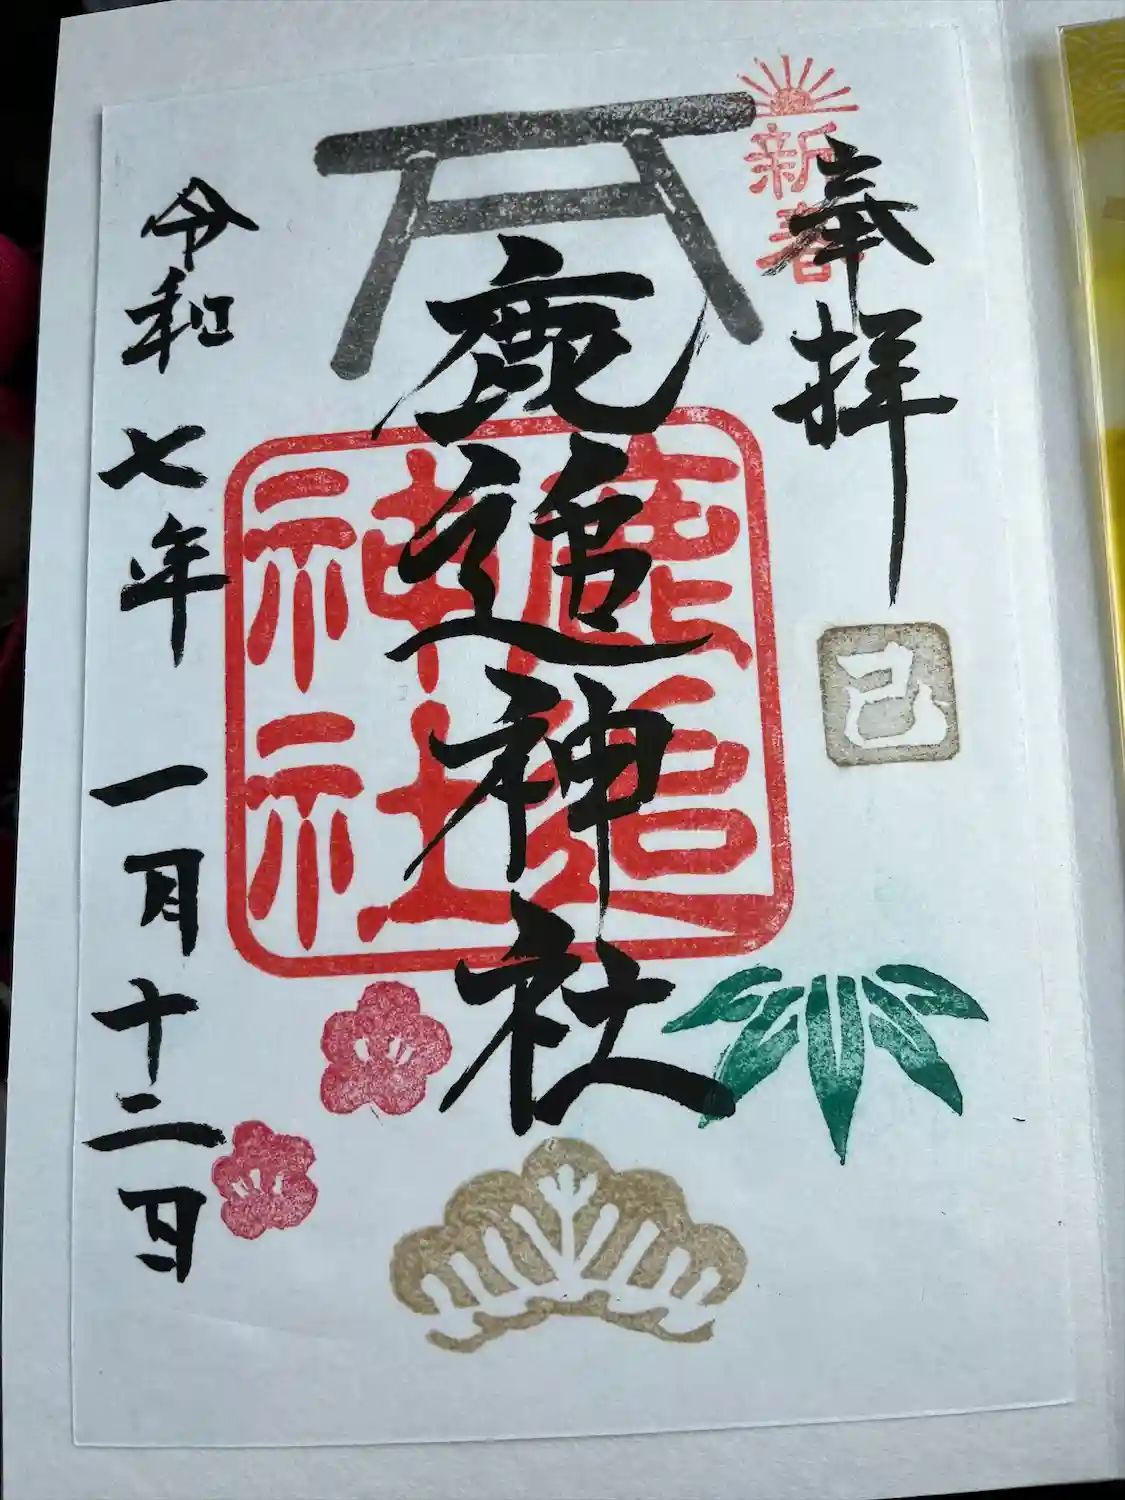 新春
奉拝
巳
鹿追神社
鹿追
神社
令和七年一月十二日